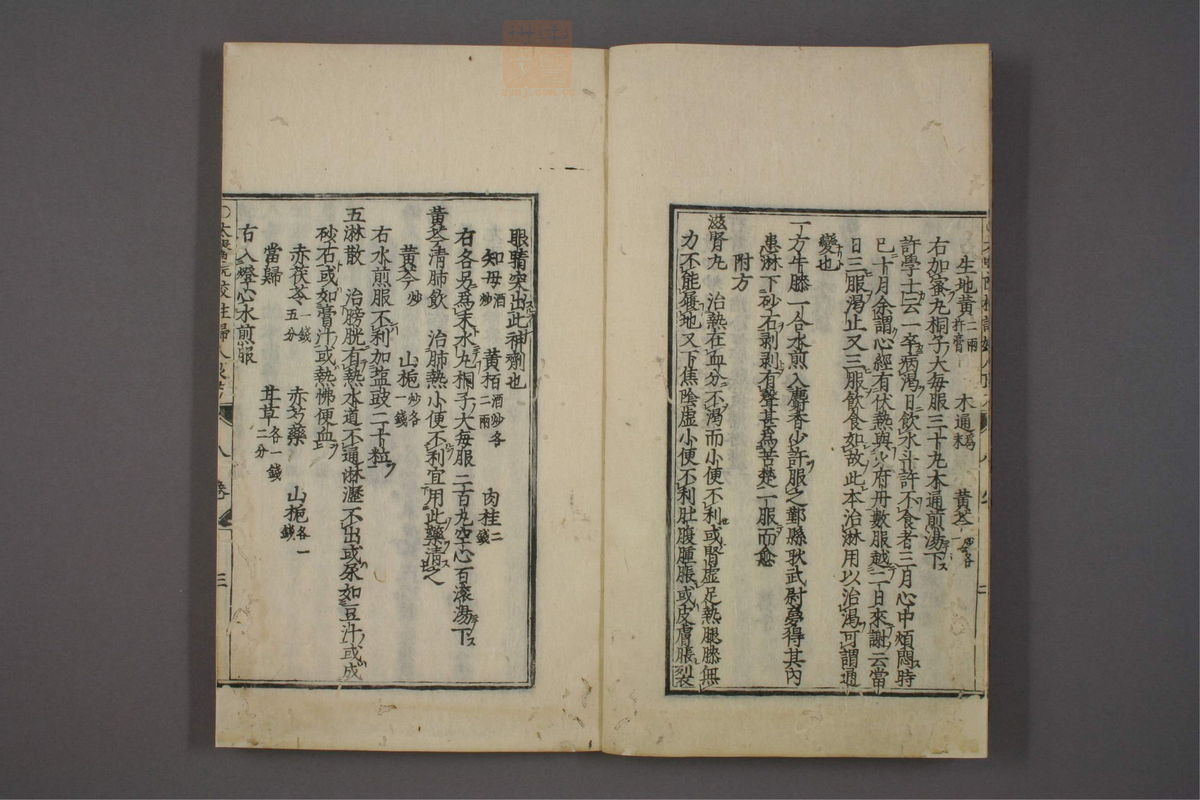 生地黃二兩許膏　木通爲末　黃芩各
右加蜜丸桐子大每服三十丸木通煎湯下ス
許學士云一卒病渴日飲水斗許不食者三月心中煩悶時
已十月余謂心經有伏熱與火府丹數服越二日來謝云當
日三服渴止又三服飲食如故此本治淋用以治渴可謂通
變也
一方牛膝一合水煎入麝香少許服之鄞縣耿武尉夢得其內
患淋下砂石剥剥有聲甚爲苦楚一服而愈
附方
滋腎丸　治熱在血分不渴而小便不利或腎虛足熱腿膝無
力不能履地又下焦陰虛小便不利肚腹腫脹或皮膚脹裂
眼睛突出此神劑也
知母酒炒　黃栢酒炒各二兩　肉桂二錢
右各另爲末水丸桐子大每服二百丸空心百滾湯下ス
黃芩清肺飲　治肺熱小便不利宜用此藥清之
黃芩炒　山梔炒各一錢
右水煎服不利加塩豉二十粒
五淋散　治膀胱有熱水道不通淋瀝不出或尿如豆汁或成
砂石或如膏汁或熱怫便血
赤茯苓一錢五分　赤芍藥　山梔各一錢
當歸　甘草各一錢二分
右入燈心水煎服
八　卷　三